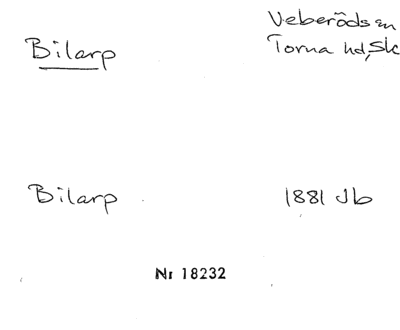 Veberöds sn
Bilarp Torna hd, Sk
Bilarp 1881 Jb
Nr 18232